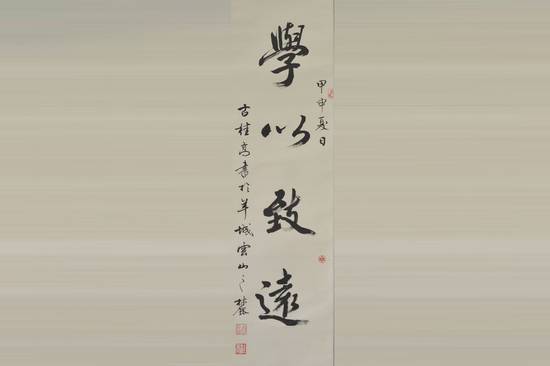 甲申夏日
學以致遠
古桂高書於羊城雲山之麓